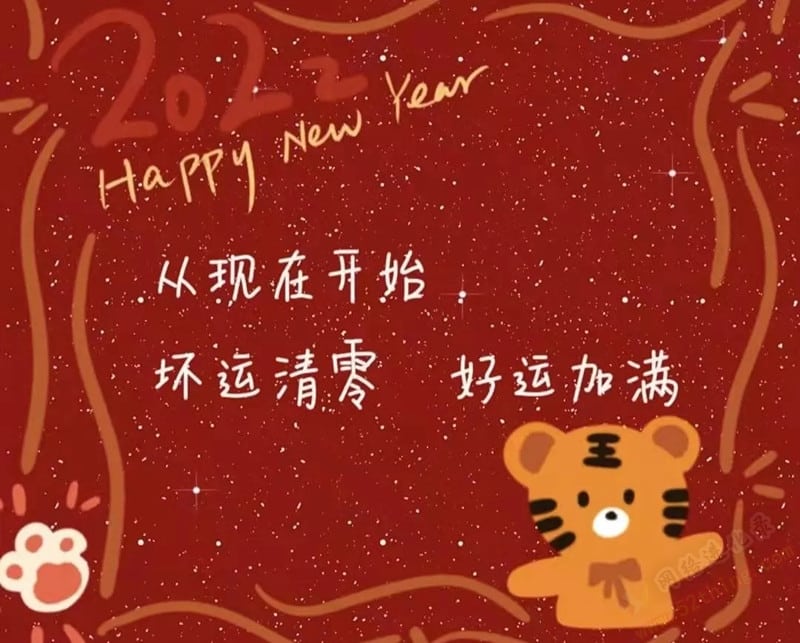 2022
Happy New Year
从现在开始
坏运清零 好运加满